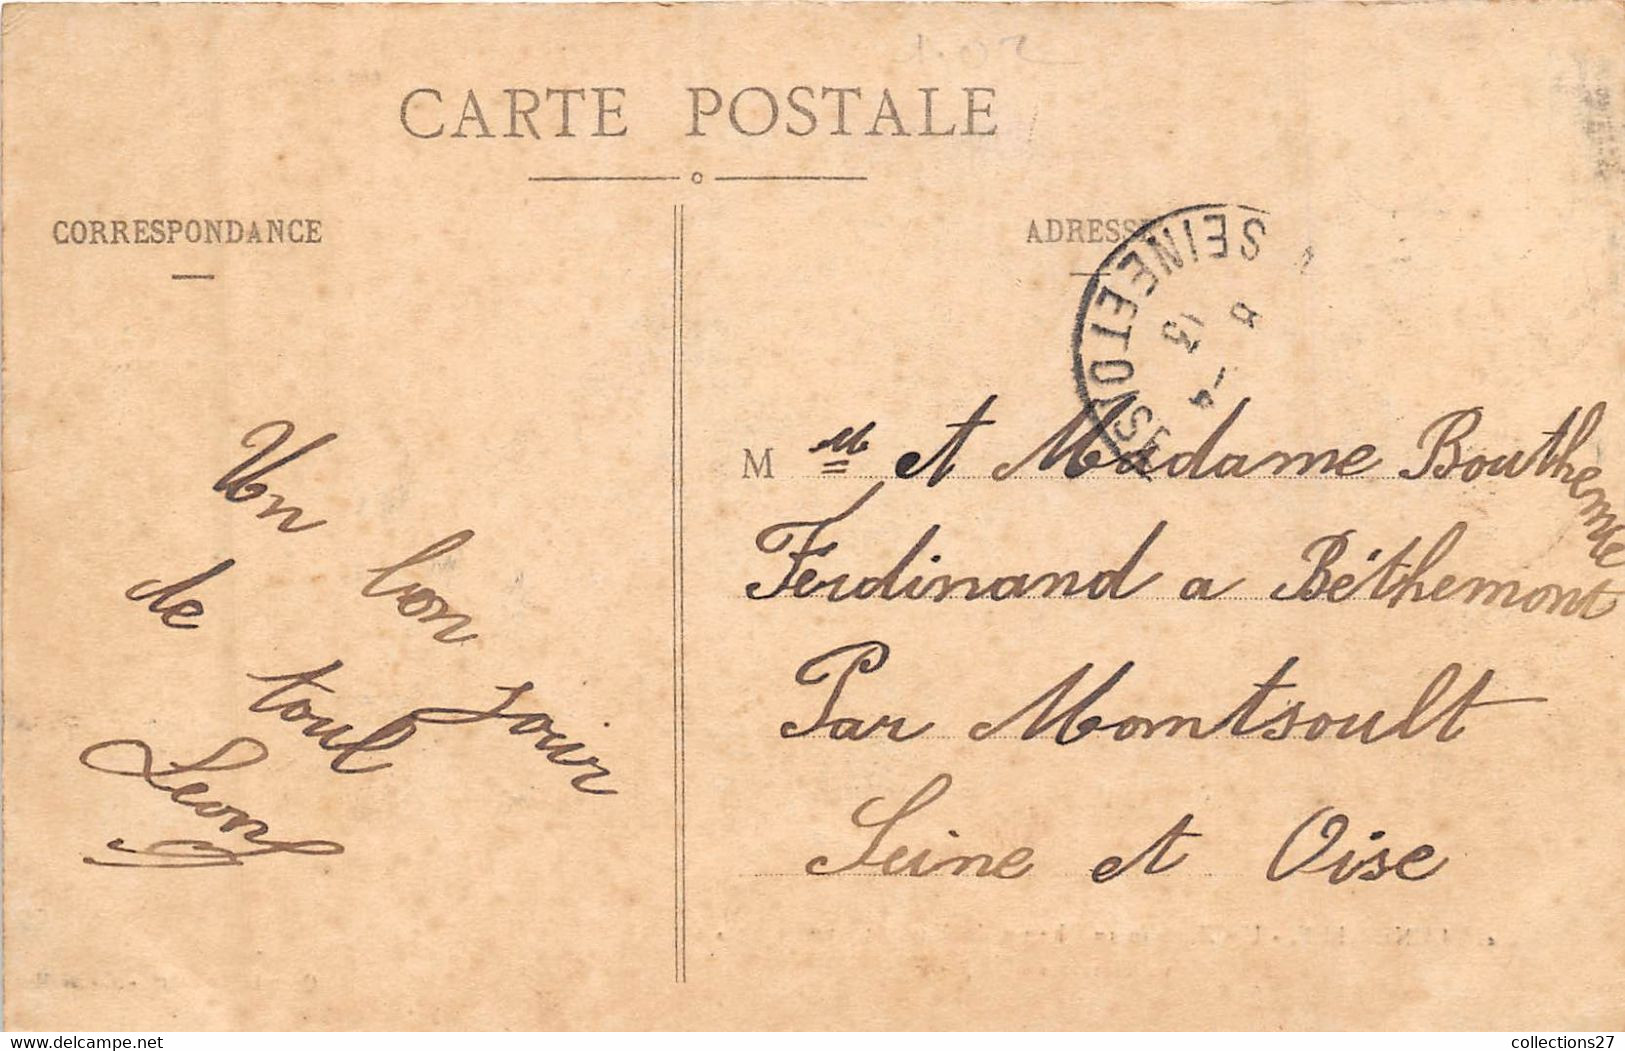 CARTE POSTALE
CORRESPONDANCE
ADRESSE
SEINE ET OISE
13
Un bon soir
de toul
Leon
M M et Madame Boutheme
Ferdinand a Béthemont
Par Montsoult
Seine et Oise
collections27